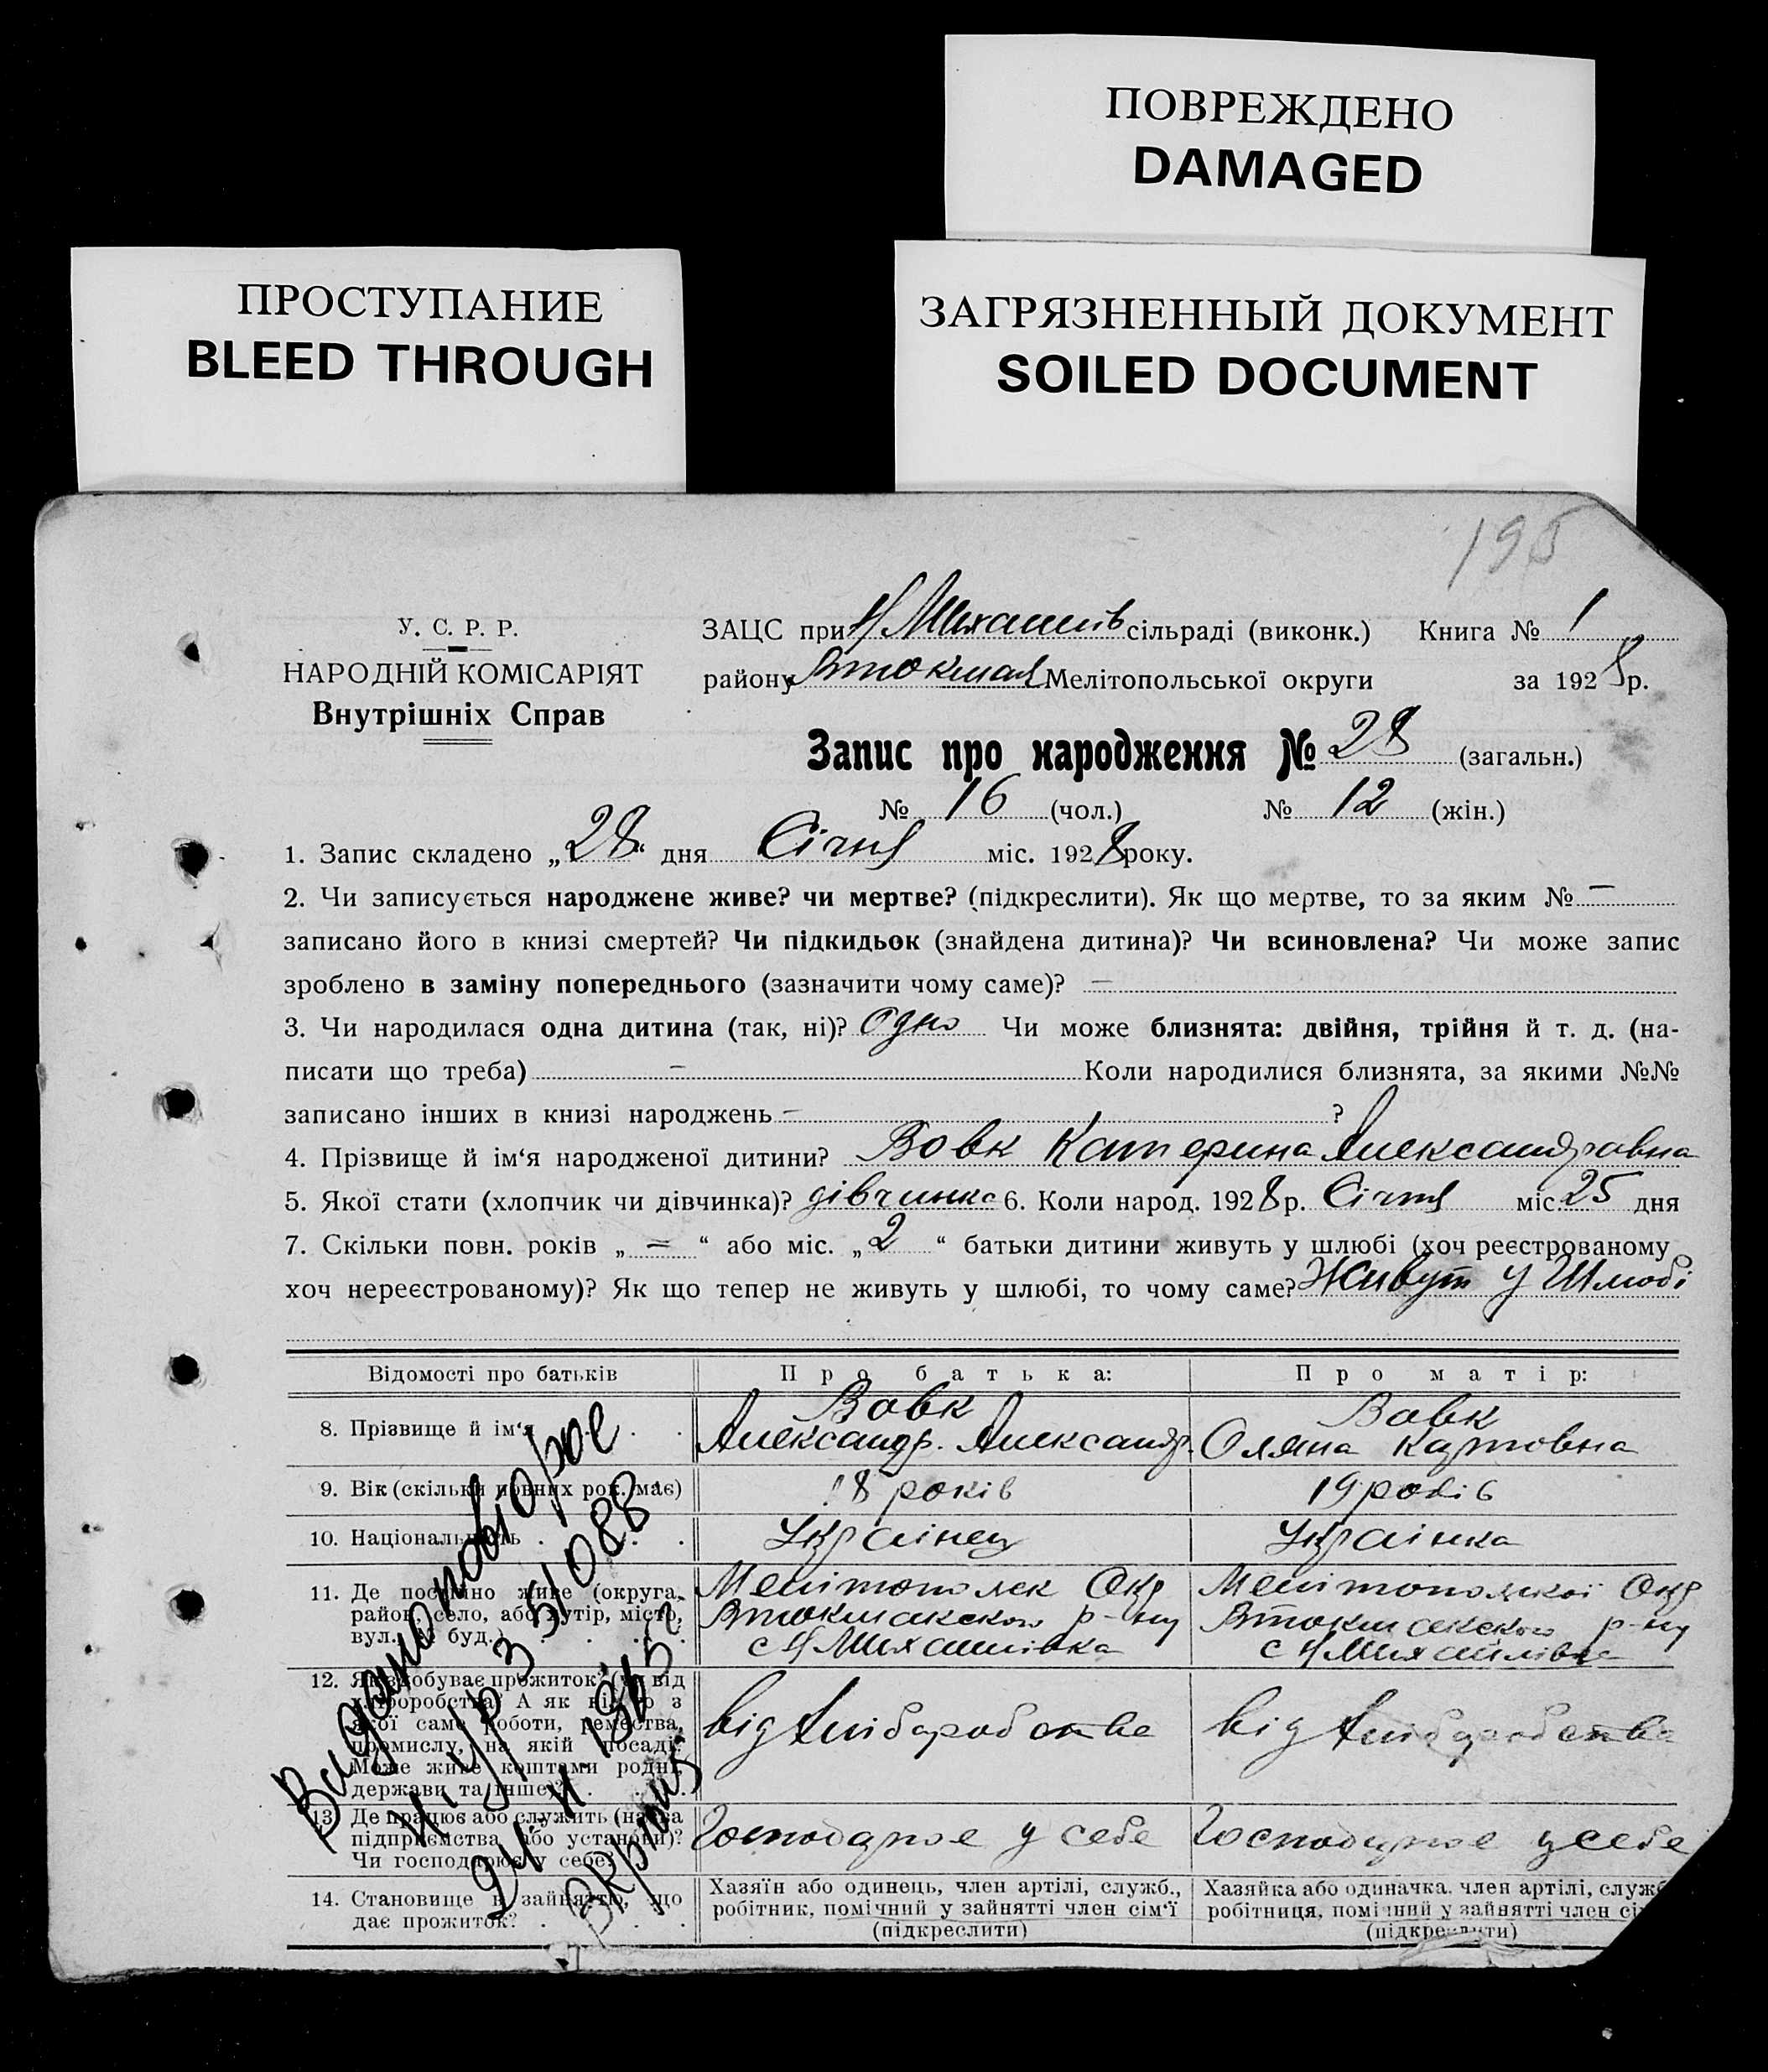 ПОВРЕЖДЕНО
DAMAGED
ПРОСТУПАНИЕ
BLEED THROUGH
ЗАГРЯЗНЕННЫЙ ДОКУМЕНТ
SOILED DOCUMENT
195
У. С. Р. Р.
НАРОДНІЙ КОМІСАРІЯТ
Внутрішніх Справ
ЗАЦС при Н Михайлів сільраді (виконк.) Книга № 1
району Втокмак Мелітопольської округи за 1928 р.
Запис про народження № 28 (загальн.)
№ 16 (чол.) № 12 (жін.)
1. Запис складено „28“ дня Січня міс. 1928 року.
2. Чи записується народжене живе? чи мертве? (підкреслити). Як що мертве, то за яким № —
записано його в книзі смертей? Чи підкидьок (знайдена дитина)? Чи всиновлена? Чи може запис
зроблено в заміну попереднього (зазначити чому саме)? —
3. Чи народилася одна дитина (так, ні)? Одно Чи може близнята: двійня, трійня й т. д. (на-
писати що треба) — Коли народилися близнята, за якими №№
записано інших в книзі народжень — ?
4. Прізвище й ім‘я народженої дитини? Вовк Катерина Александравна
5. Якої стати (хлопчик чи дівчинка)? дівчинка 6. Коли народ. 1928 р. Січня міс. 25 дня
7. Скільки повн. років „ = “ або міс. „ 2 “ батьки дитини живуть у шлюбі (хоч реєстрованому
хоч нереєстрованому)? Як що тепер не живуть у шлюбі, то чому саме? Живут у Шлюбі
Відомості про батьків Про батька: Про матір:
8. Прізвище й ім‘я
Вовк
Александр. Александр.
Вовк
Оляна Картовна
9. Вік (скільки повних рок. має) 18 років 19 років
10. Національність Украінец Украінка
11. Де постійно живе (округа,
район, село, або хутір, місто,
вул., № буд.)
Мелітополск Окр
Втокмакского р-ну
с Н Михайлівка
Мелітополскої Окр
Втокмакского р-ну
с Н Михайлівка
12. Як здобуває прожиток? (чи від
хліборобства? А як ні, то з
якої саме роботи, ремества,
промислу, на якій посаді?
Може живе коштами родні,
держави та інше)?
від хлібаробства
від хлібаробства
13. Де працює або служить (назва
підприємства або установи)?
Чи господарює у себе?
Господарює у себе
Господарює у себе
14. Становище в зайняттю, що
дає прожиток?
Хазяїн або одинець, член артілі, служб.,
робітник, помічний у зайнятті член сім‘ї
(підкреслити)
Хазяйка або одиначка, член артілі, служб
робітниця, помічний у зайнятті член сі
(підкреслити)
Видано повторое